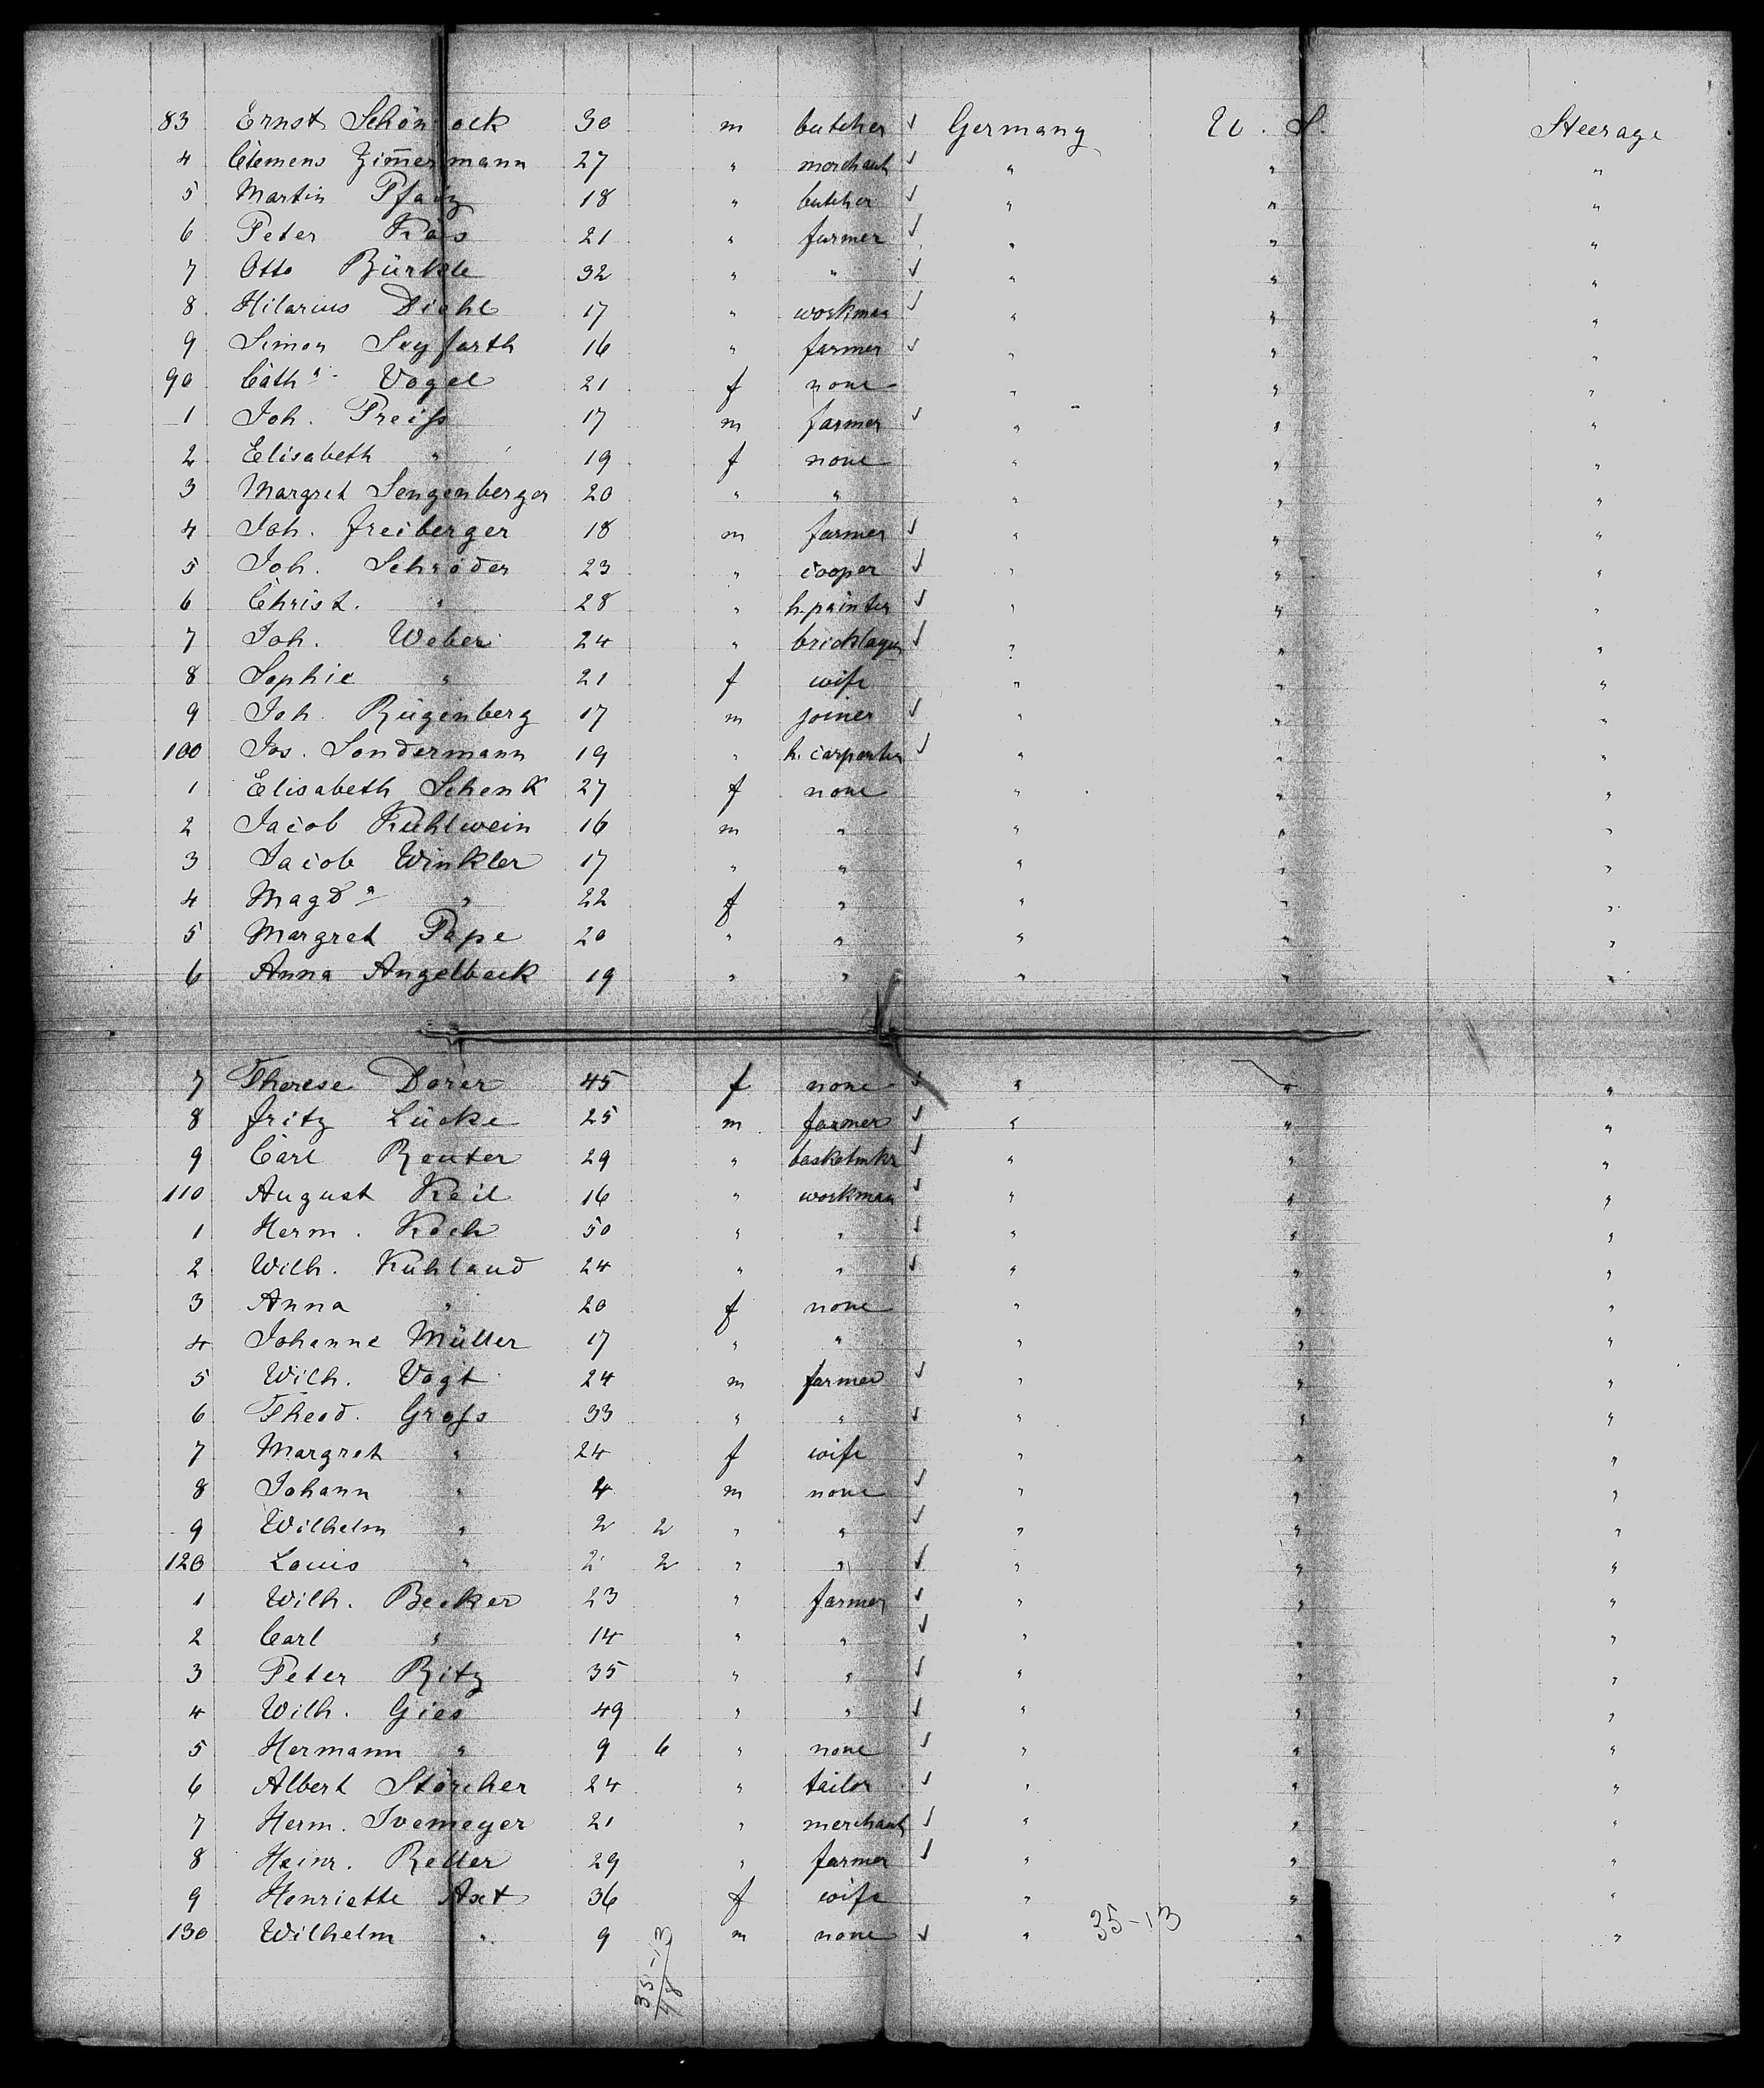 83 Ernst Schönbock 30 m butcher ✓ Germany U. S. Steerage
4 Clemens Zim̄ermann 27 " merchant ✓ " " "
5 Martin Pfalz 18 " butcher ✓ " " "
6 Peter 21 " farmer ✓ " " "
7 Otto Bürkle 32 " " ✓ " " "
8 Hilarius Diehl 17 " workman ✓ " " "
9 Simon Seyfarth 16 " farmer ✓ " " "
90 Cath.a Vogel 21 f none " " "
1 Joh. Preiss 17 m farmer ✓ " " "
2 Elisabeth " 19 f none " " "
3 Margret Sengenberger 20 " " " " "
4 Joh. Freiberger 18 m farmer ✓ " " "
5 Joh. Schröder 23 " cooper ✓ " " "
6 Christ. " 28 " h. painter ✓ " " "
7 Joh. Weber 24 " bricklayer ✓ " " "
8 Sophie " 21 f wife " " "
9 Joh. Rügenberg 17 m joiner ✓ " " "
100 Jos. Sondermann 19 " h. carpenter ✓ " " "
1 Elisabeth Schenk 27 f none " " "
2 Jacob Kühlwein 16 m " " " "
3 Jacob Winkler 17 " " " " "
4 Magda " 22 f " " " "
5 Margret Pape 20 " " " " "
6 Anna Angelbeck 19 " " " " "
7 Therese Dorer 45 f none ✓ " " "
8 Fritz Lücke 25 m farmer ✓ " " "
9 Carl Reuter 29 " basketmkr ✓ " " "
110 August Keil 16 " workman ✓ " " "
1 Herm. Koch 50 " " ✓ " " "
2 Wilh. Kuhland 24 " " ✓ " " "
3 Anna " 20 f none " " "
4 Johanne Müller 17 " " " " "
5 Wilh. Vogt 24 m farmer ✓ " " "
6 Theod. Gross 33 " " ✓ " " "
7 Margret " 24 f wife " " "
8 Johann " 4 m none ✓ " " "
9 Wilhelm " 2 2 " " ✓ " " "
120 Louis " 2 2 " " ✓ " " "
1 Wilh. Becker 23 " farmer ✓ " " "
2 Carl " 14 " " ✓ " " "
3 Peter Ritz 35 " " ✓ " " "
4 Wilh. Gies 49 " " ✓ " " "
5 Hermann " 9 6 " none ✓ " " "
6 Albert Störcher 24 " tailor ✓ " " "
7 Herm. Ivemeyer 21 " merchant ✓ " " "
8 Heinr. Reller 29 " farmer ✓ " " "
9 Henriette Axt 36 f wife " " "
130 Wilhelm " 9 m none ✓ " 35-13 " "
35-13
48